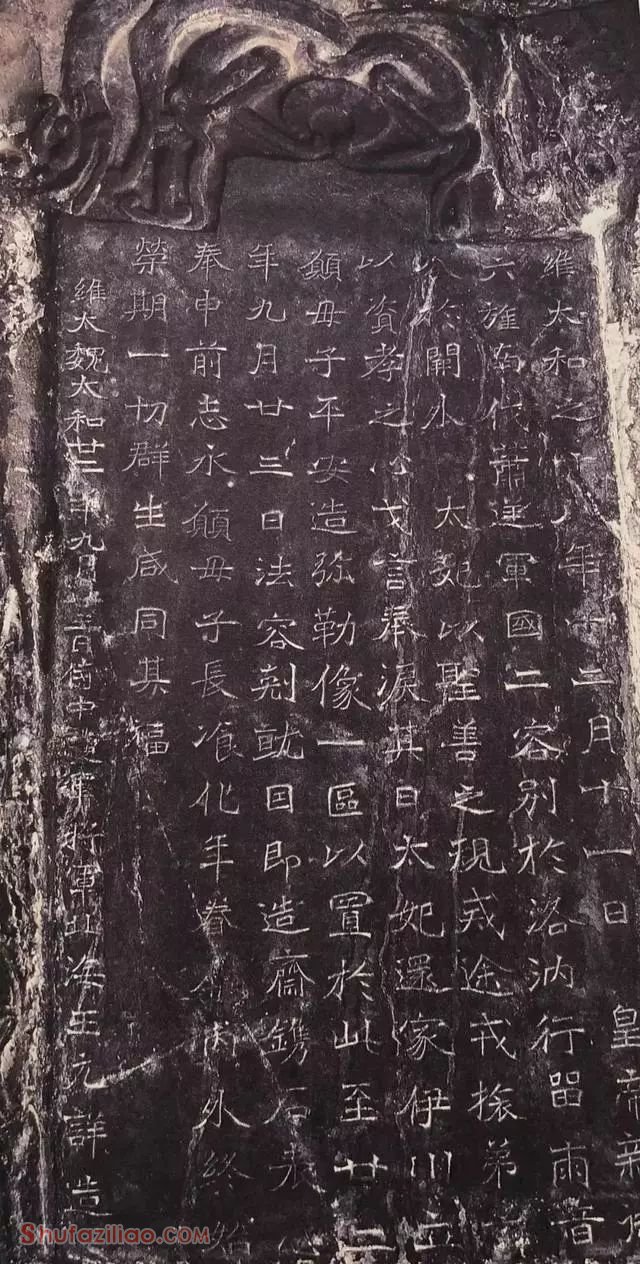 維太和之十八年十二月十一日 皇帝親御
六旌南伐蕭逆軍國二容別於洛汭行留兩音
分於闕外 太妃以聖善之規戒途戎旅弟子
以資孝之心戈言奉淚其日太妃還家伊川立
願母子平安造弥勒像一區以置於此至廿二
年九月廿三日法容剋就因即造齋鐫石表心
奉申前志永願母子長飡化年眷屬內外終始
榮期一切群生咸同其福
維大魏太和廿二年九月廿三日侍中護軍將軍北海王元詳造
Shufaziliao.com